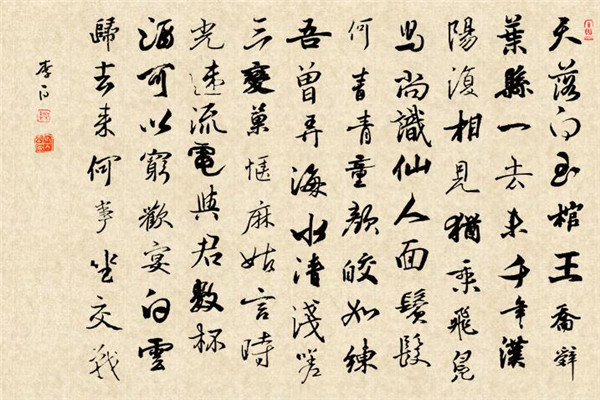 天落白玉棺王喬辭
葉縣一去未千年漢
陽復相見猶乘飛鳧
舄尚識仙人面鬢髮
何青青童顏皎如練
吾曾弄海水清淺嗟
三變菓愜麻姑言時
光速流電與君數杯
酒可以窮歡宴白雲
歸去來何事坐交戰
李白